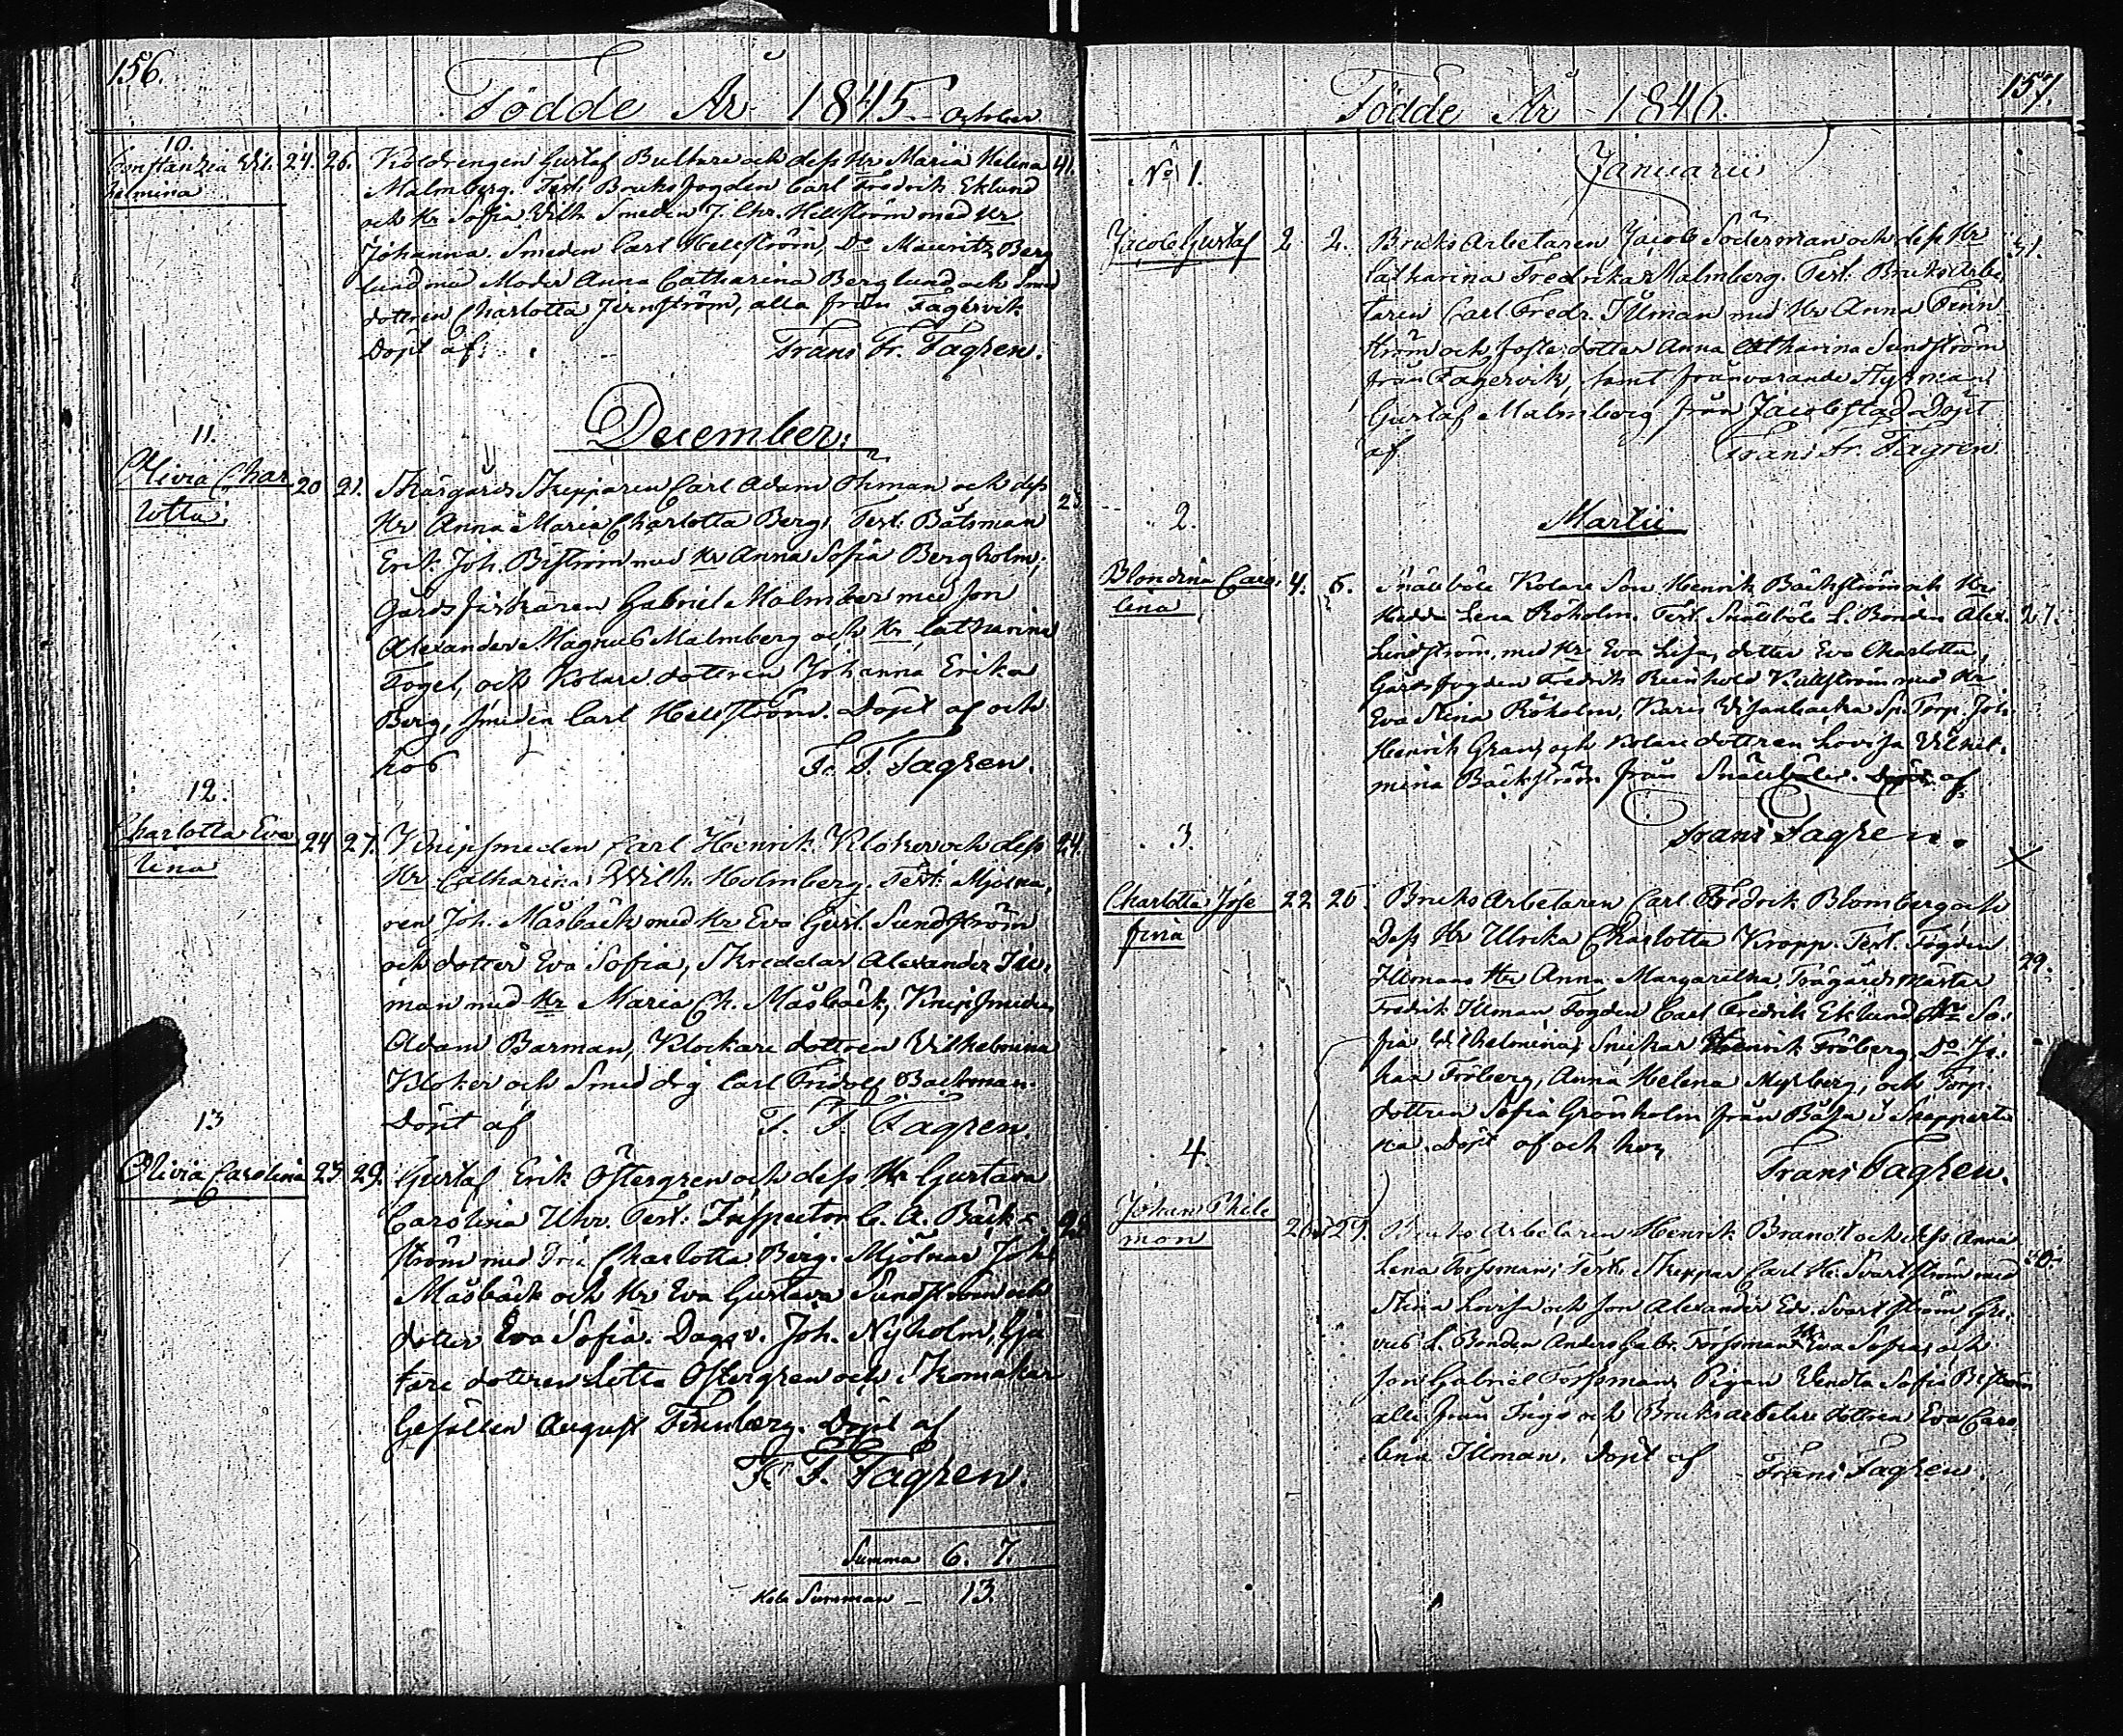 156.
Födde År 1845 October
10.
Constanzia Wil- 24. 26. Koldrengen Gustaf Bultare och dess Hu Maria Helena 41.
helmina
Malmberg. Test: Bruksfogden Carl Fredrik Eklund
och Hu Sofia Wilh. Smeden J. Chr. Hellström med Hu
Johanna. Smeden Carl Hellström, Do Mauritz Berg
lund med Moder Anna Catharina Berglund och Smed
dottren Charlotta Jernström, alla från Fagervik.
Döpt af: Frans Fr. Fagren.
December:
11.
Olivia Char 20 21. Skärgårds Skepparen Carl Adam Öhman och dess
lotta
Hu Anna Maria Charlotta Berg. Test: Båtsman
Erik Joh. Biström med Hu Anna Sofia Bergholm;
Gårdsfiskaren Gabriel Malmberg med son
Alexander Magnus Malmberg och Hu Catharina
Fogel, och Kolare dottren Johanna Erika
Berg, Smeden Carl Hellström. Döpt af och
hos Fr. F. Fagren.
12.
Charlotta Eve 24 27. Knipsmeden Carl Henrik Kloker och dess 24.
lina
Hu Catharina Wilh. Holmberg. Test: Mjölna
ren Joh. Måsbäck med Hu Eva Gust. Sundström
och dotter Eva Sofia, Skreddar Alexander Ill-
man med Hu Maria Ch. Måsbäck, Knipsmeden
Adam Barman, Klockare dottren Wilhelmina
Kloker och Smed drg Carl Fridolf Backman.
Döpt af F. F. Fagren.
13
Olivia Carolina 23 29. Gustaf Erik Östergren och dess Hu Gustava
Carolina Uhr. Test: Inspector C. A. Bäck-
ström med Fru Charlotta Berg. Mjölnar Joh.
Måsbäck och Hu Eva Gustava Sundström och
dotter Eva Sofia. Dagsv. Joh. Nyholm, Gju
tare dottren Lotta Östergren och Skomakar
Gesällen August Finnberg. Döpt af
Fr. F. Fagren.
Summa 6. 7.
Hela Summan — 13.
157.
Födde År 1846.
Januarii
No 1.
Jacob Gustaf 2 2. Bruks Arbetaren Jacob Söderman och dess Hu 31.
Catharina Fredrika Malmberg. Test: Bruks Arbe
taren Carl Fredr. Illman med Hu Anna Finn
ström och foster dotter Anna Catharina Sundström
från Fagervik, samt frånvarande Styrman
Gustaf Malmberg från Jacobstad. Döpt
af Frans Fr. Fagren
Martii
2.
Blondina Caro- 4. 6. Snällböle Kolare Son Henrik Bäckström och Hu
lina
Lena Röholm. Test. Snällböle L. Bonden Alex. 27.
Lindström, med Hu Eva Lisa, dotter Eva Charlotta,
Gårdsfogden Fredrik Reinhold Kullström med Hu
Eva Stina Röholm, Karis Sp. Torp. Joh.
Henrik Grans och Kolare dottren Lovisa Wilhel-
mina Bäckström från Snällböle. Döpt af
Frans Fagren.
3.
Charlotta Jose 22 25. Bruks Arbetaren Carl Fredrik Blomberg och
fina
Dess Hu Ulrika Charlotta Kropp. Test. Fogden
Illmans Hu Anna Margaretha, Trägårds Mästar 29.
Fredrik Illman Fogden Carl Fredrik Eklund, Hu So-
fia Wilhelmina, Snickar Henrik Fröberg, Do Jo-
han Fröberg, Anna Helena Myrberg, och Torp.
dottren Sofia Grönholm från Båsa i
Döpt af och hos
Frans Fagren.
4.
Johan Phile
mon
29. Bruks Arbetaren Henrik Brandt och dess Anna
Lena Forssman; Test: Skeppar Carl H. Svartström med
Stina Lovisa och son Alexander Ed. Svartström,
L. Bonden Anders Gabr. Forssman Hu Eva Sofia, och
son Gabriel Forssman, Pigan Wendla Sofia Biström
alla från Ingå och Bruksarbetare dottren Eva Caro
lina Illman. Döpt af Frans Fagren.